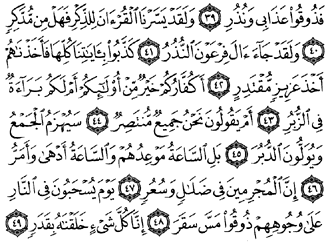 فَذُوقُوا۟ عَذَابِى وَنُذُرِ ٣٩ وَلَقَدْ يَسَّرْنَا ٱلْقُرْءَانَ لِلذِّكْرِ فَهَلْ مِن مُّدَّكِرٍ
٤٠ وَلَقَدْ جَآءَ ءَالَ فِرْعَوْنَ ٱلنُّذُرُ ٤١ كَذَّبُوا۟ بِـَٔايَـٰتِنَا كُلِّهَا فَأَخَذْنَـٰهُمْ
أَخْذَ عَزِيزٍ مُّقْتَدِرٍ ٤٢ أَكُفَّارُكُمْ خَيْرٌ مِّنْ أُو۟لَـٰٓئِكُمْ أَمْ لَكُم بَرَآءَةٌ
فِى ٱلزُّبُرِ ٤٣ أَمْ يَقُولُونَ نَحْنُ جَمِيعٌ مُّنتَصِرٌ ٤٤ سَيُهْزَمُ ٱلْجَمْعُ
وَيُوَلُّونَ ٱلدُّبُرَ ٤٥ بَلِ ٱلسَّاعَةُ مَوْعِدُهُمْ وَٱلسَّاعَةُ أَدْهَىٰ وَأَمَرُّ
٤٦ إِنَّ ٱلْمُجْرِمِينَ فِى ضَلَـٰلٍ وَسُعُرٍ ٤٧ يَوْمَ يُسْحَبُونَ فِى ٱلنَّارِ
عَلَىٰ وُجُوهِهِمْ ذُوقُوا۟ مَسَّ سَقَرَ ٤٨ إِنَّا كُلَّ شَىْءٍ خَلَقْنَـٰهُ بِقَدَرٍ ٤٩